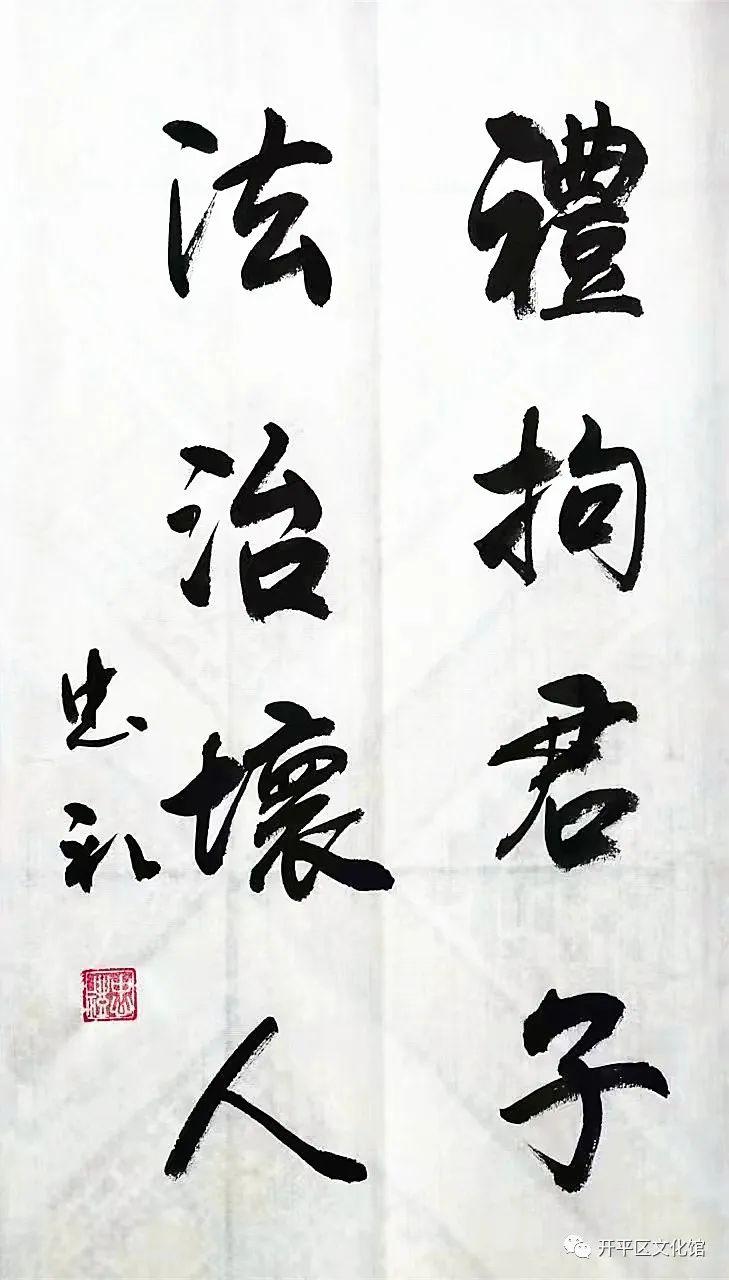 禮拘君子
法治壞人
忠礼
忠禮
开平区文化馆